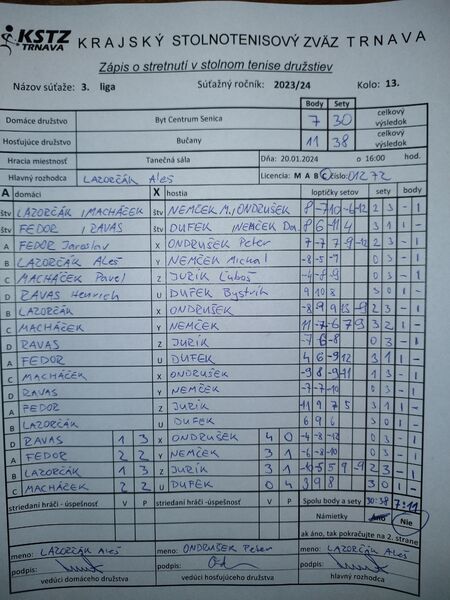 KSTZ
TRNAVA
KRAJSKÝ STOLNOTENISOVÝ ZVÄZ TRNAVA
Zápis o stretnutí v stolnom tenise družstiev
Názov súťaže: 3. liga Súťažný ročník: 2023/24 Kolo: 13.
Body Sety
Domáce družstvo Byt Centrum Senica 7 30 celkový výsledok
Hosťujúce družstvo Bučany 11 38 celkový výsledok
Hracia miestnosť Tanečná sála Dňa: 20.01.2024 o 16:00 hod.
Hlavný rozhodca LAZORČÁK Aleš Licencia: M A B C číslo: 01272
A domáci X hostia loptičky setov sety body
štv LAZORČÁK / MACHÁČEK štv NEMČEK M., ONDRUŠEK 8 -7 10 -6 -12 2 3 - 1
štv FEDOR / RAVAS štv DUFEK / NEMČEK Da. 8 6 -11 4 3 1 1 -
A FEDOR Jaroslav X ONDRUŠEK Peter -7 7 7 -9 -12 2 3 - 1
B LAZORČÁK Aleš Y NEMČEK Michal -8 -5 -7 0 3 - 1
C MACHÁČEK Pavel Z JURÍK Ľuboš -4 -8 -9 0 3 - 1
D RAVAS Henrich U DUFEK Bystrík 9 10 8 3 0 1 -
B LAZORČÁK X ONDRUŠEK -8 9 9 13 -9 2 3 - 1
C MACHÁČEK Y NEMČEK 11 -7 -6 7 9 3 2 1 -
D RAVAS Z JURÍK -7 -6 -8 0 3 - 1
A FEDOR U DUFEK 4 6 -9 12 3 1 1 -
C MACHÁČEK X ONDRUŠEK -9 8 -9 -11 1 3 - 1
D RAVAS Y NEMČEK -7 -7 -10 0 3 - 1
A FEDOR Z JURÍK -11 9 7 5 3 1 1 -
B LAZORČÁK U DUFEK 6 9 6 3 0 1 -
D RAVAS 1 3 X ONDRUŠEK 4 0 -4 -8 -12 0 3 - 1
A FEDOR 2 2 Y NEMČEK 3 1 -6 -8 -10 0 3 - 1
B LAZORČÁK 1 3 Z JURÍK 3 1 -10 -5 5 9 -9 2 3 - 1
C MACHÁČEK 2 2 U DUFEK 0 4 3 9 8 3 0 1 -
striedaní hráči - úspešnosť V P striedaní hráči -úspešnosť V P Spolu body a sety 30:38 7:11
Námietky Áno Nie
ak áno, tak pokračujte na 2. strane
meno: LAZORČÁK Aleš meno: ONDRUŠEK Peter meno: LAZORČÁK Aleš
podpis: podpis: podpis:
vedúci domáceho družstva vedúci hosťujúceho družstva hlavný rozhodca